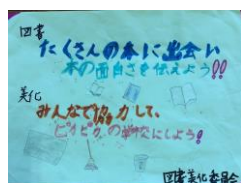 図書
たくさんの本に出会い
本の面白さを伝えよう!!
美化
みんなで協力して、
ピカピカの学校にしよう!
図書美化委員会